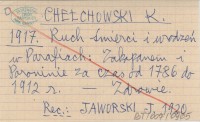 CHEŁCHOWSKI K.
1917. Ruch śmierci i urodzeń
w Parafiach: Zakopanem i
Poroninie za czas od 1786 do
1912 r. — Zdrowie.
Rec.: JAWORSKI J. 1920.